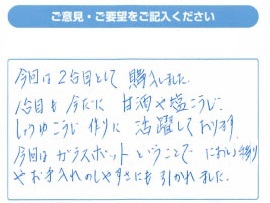 ご意見・ご要望をご記入ください
今回は2台目として購入しました。
1台目も今だに甘酒や塩こうじ、
しょうゆこうじ作りに活躍しております。
今回はガラスポットということでにおい移り
やお手入れのしやすさにも引かれました。